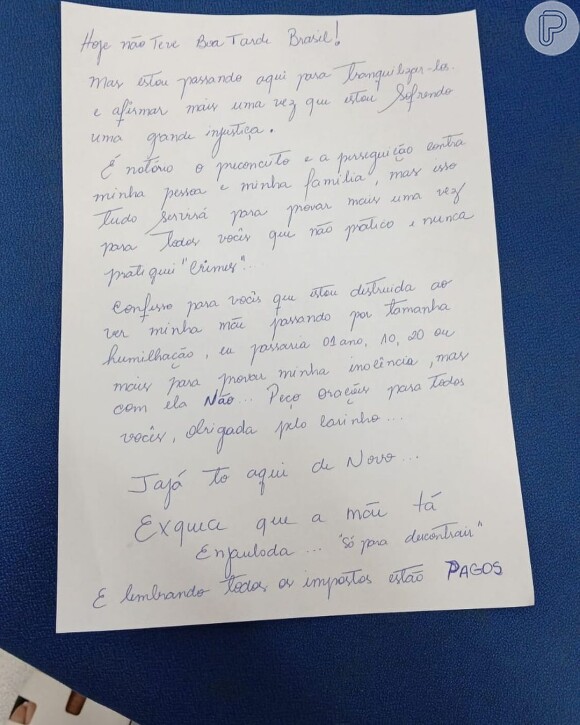 Hoje não Teve Boa Tarde Brasil!
Mas estou passando aqui para Tranquilizar-los
e afirmar mais uma vez que estou Sofrendo
uma grande injustiça.
É notório o preconceito e a perseguição contra
minha pessoa e minha família, mas isso
Tudo Servirá para provar mais uma vez
para Todos vocês que não pratico e nunca
pratiquei "Crimes"...
Confesso para vocês que estou destruida ao
ver minha mãe passando por tamanha
humilhação, eu passaria 01 ano, 10, 20 ou
mais para provar minha inocência, mas
com ela Não... Peço orações para todos
vocês, obrigada pelo carinho...
Jajá to aqui de Novo...
Exquece que a mãe tá
Enjaulada... "só para descontrair"
E lembrando todos os impostos estão PAGOS
P